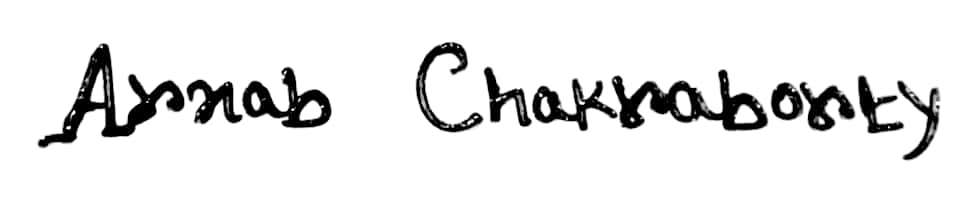 Arnab Chakraborty